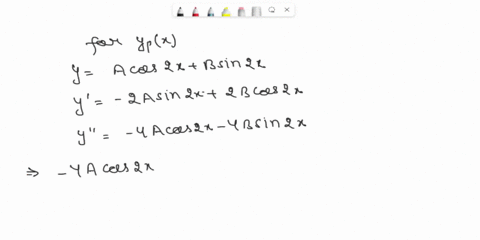 for yp(x)
y = A cos 2x + B sin 2x
y' = -2A sin 2x + 2B cos 2x
y" = -4A cos 2x - 4B sin 2x
⇒ -4A cos 2x